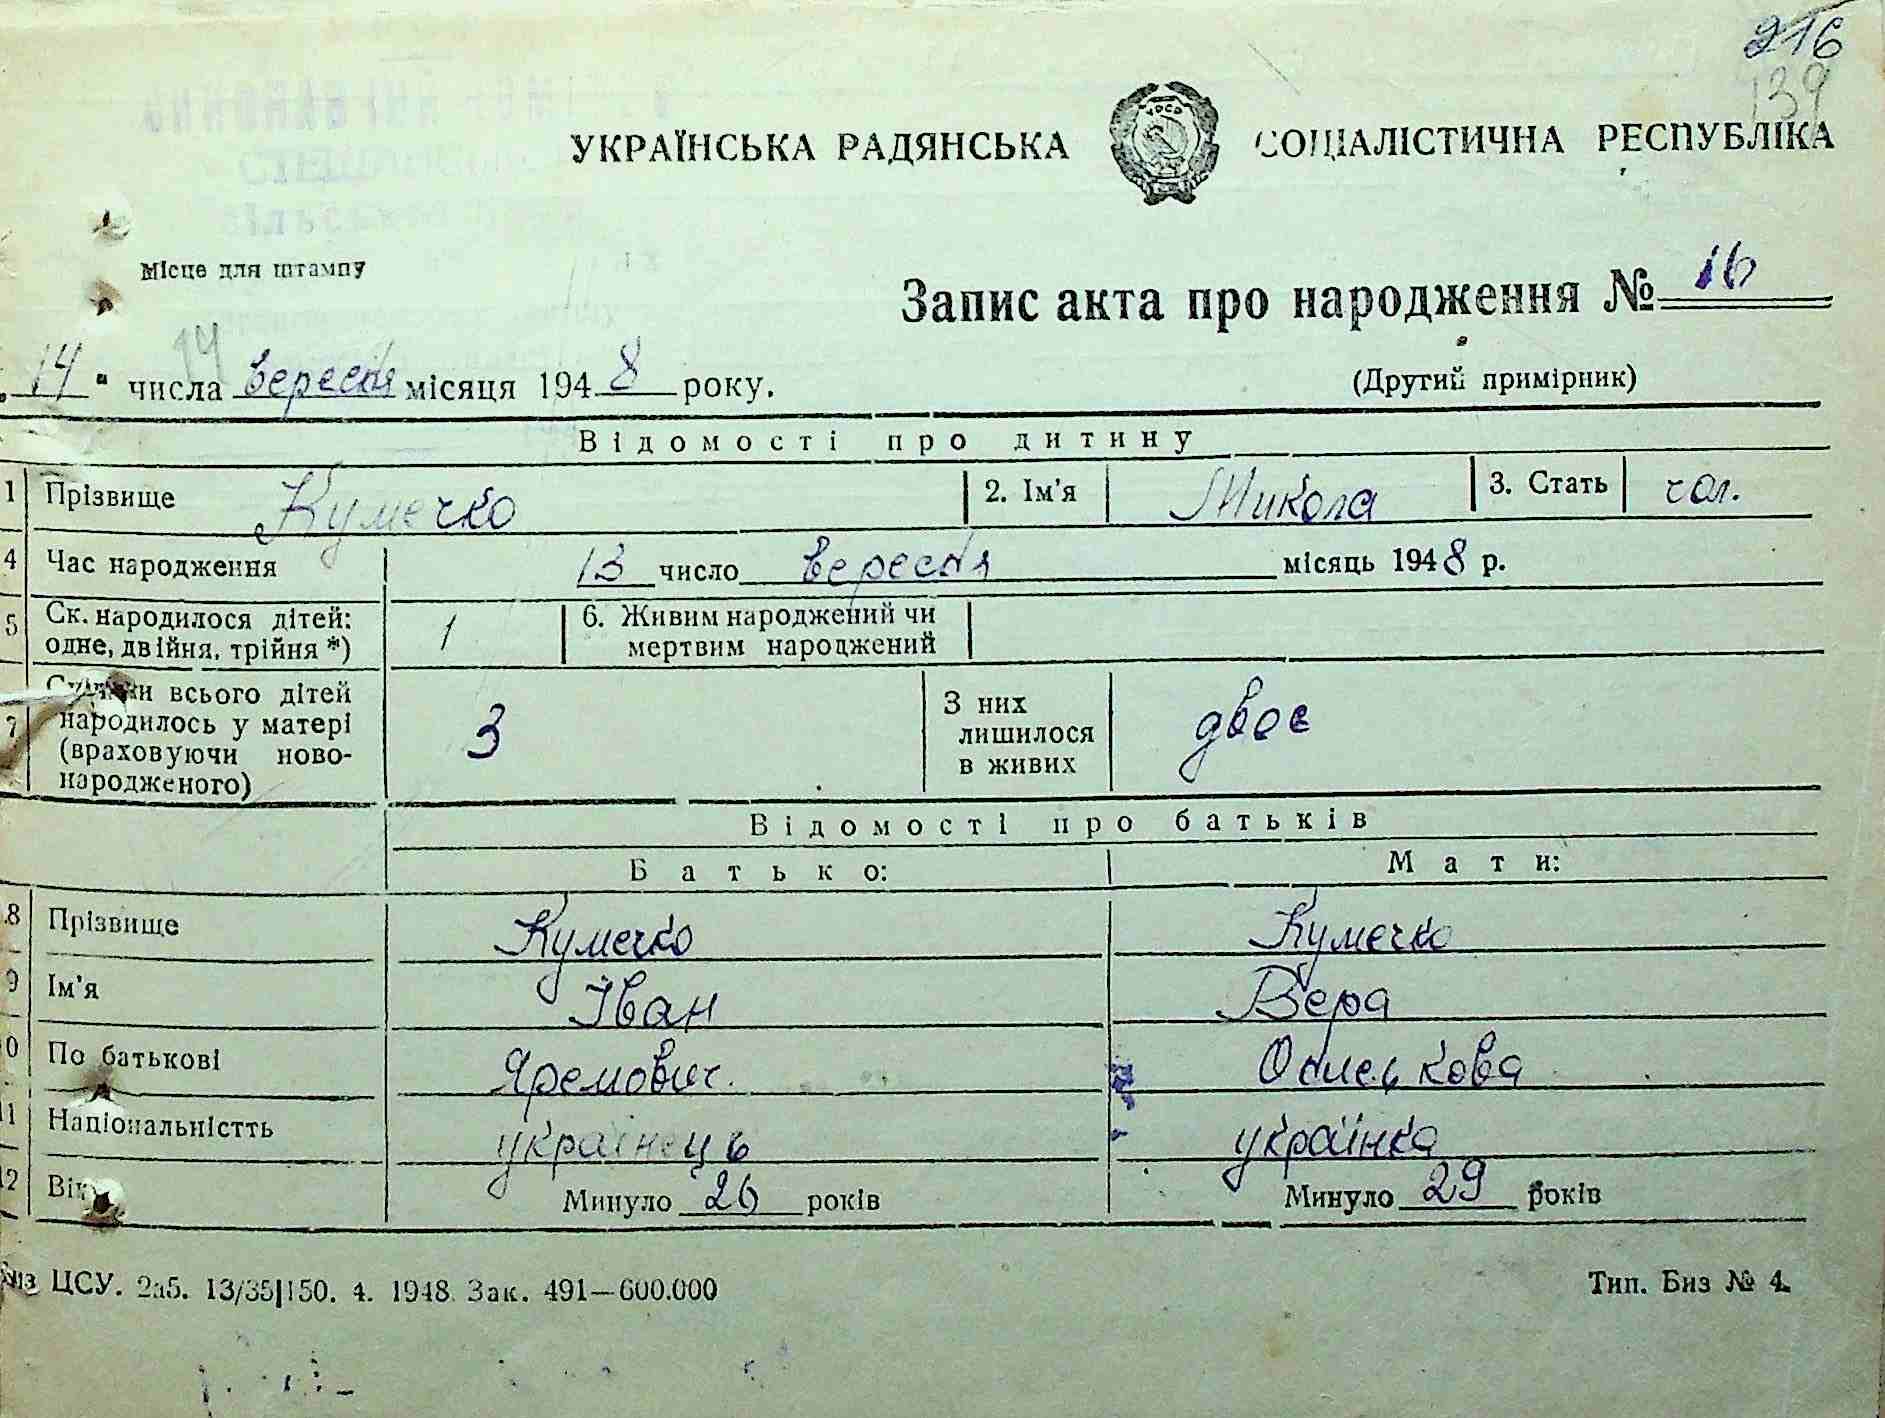 216
139
УКРАЇНСЬКА РАДЯНСЬКА СОЦІАЛІСТИЧНА РЕСПУБЛІКА
УРСР
Місце для штампу
Запис акта про народження № 16
14
„14“ числа вересня місяця 1948 року.
(Другий примірник)
Відомості про дитину
1 Прізвище Кумечко 2. Ім'я Микола 3. Стать чол.
4 Час народження 13 число вересня місяць 1948 р.
5 Ск. народилося дітей: одне, двійня, трійня *) 1 6. Живим народжений чи мертвим народжений
7 Скільки всього дітей народилось у матері (враховуючи ново-народженого) 3 З них лишилося в живих двоє
Відомості про батьків
Батько: Мати:
8 Прізвище Кумечко Кумечко
9 Ім'я Іван Вера
10 По батькові Яремович.
11 Національністть українець українка
12 Вік Минуло 26 років Минуло 29 років
ЦСУ. 2а5. 13/35|150. 4. 1948 Зак. 491—600.000
Тип. Биз № 4.